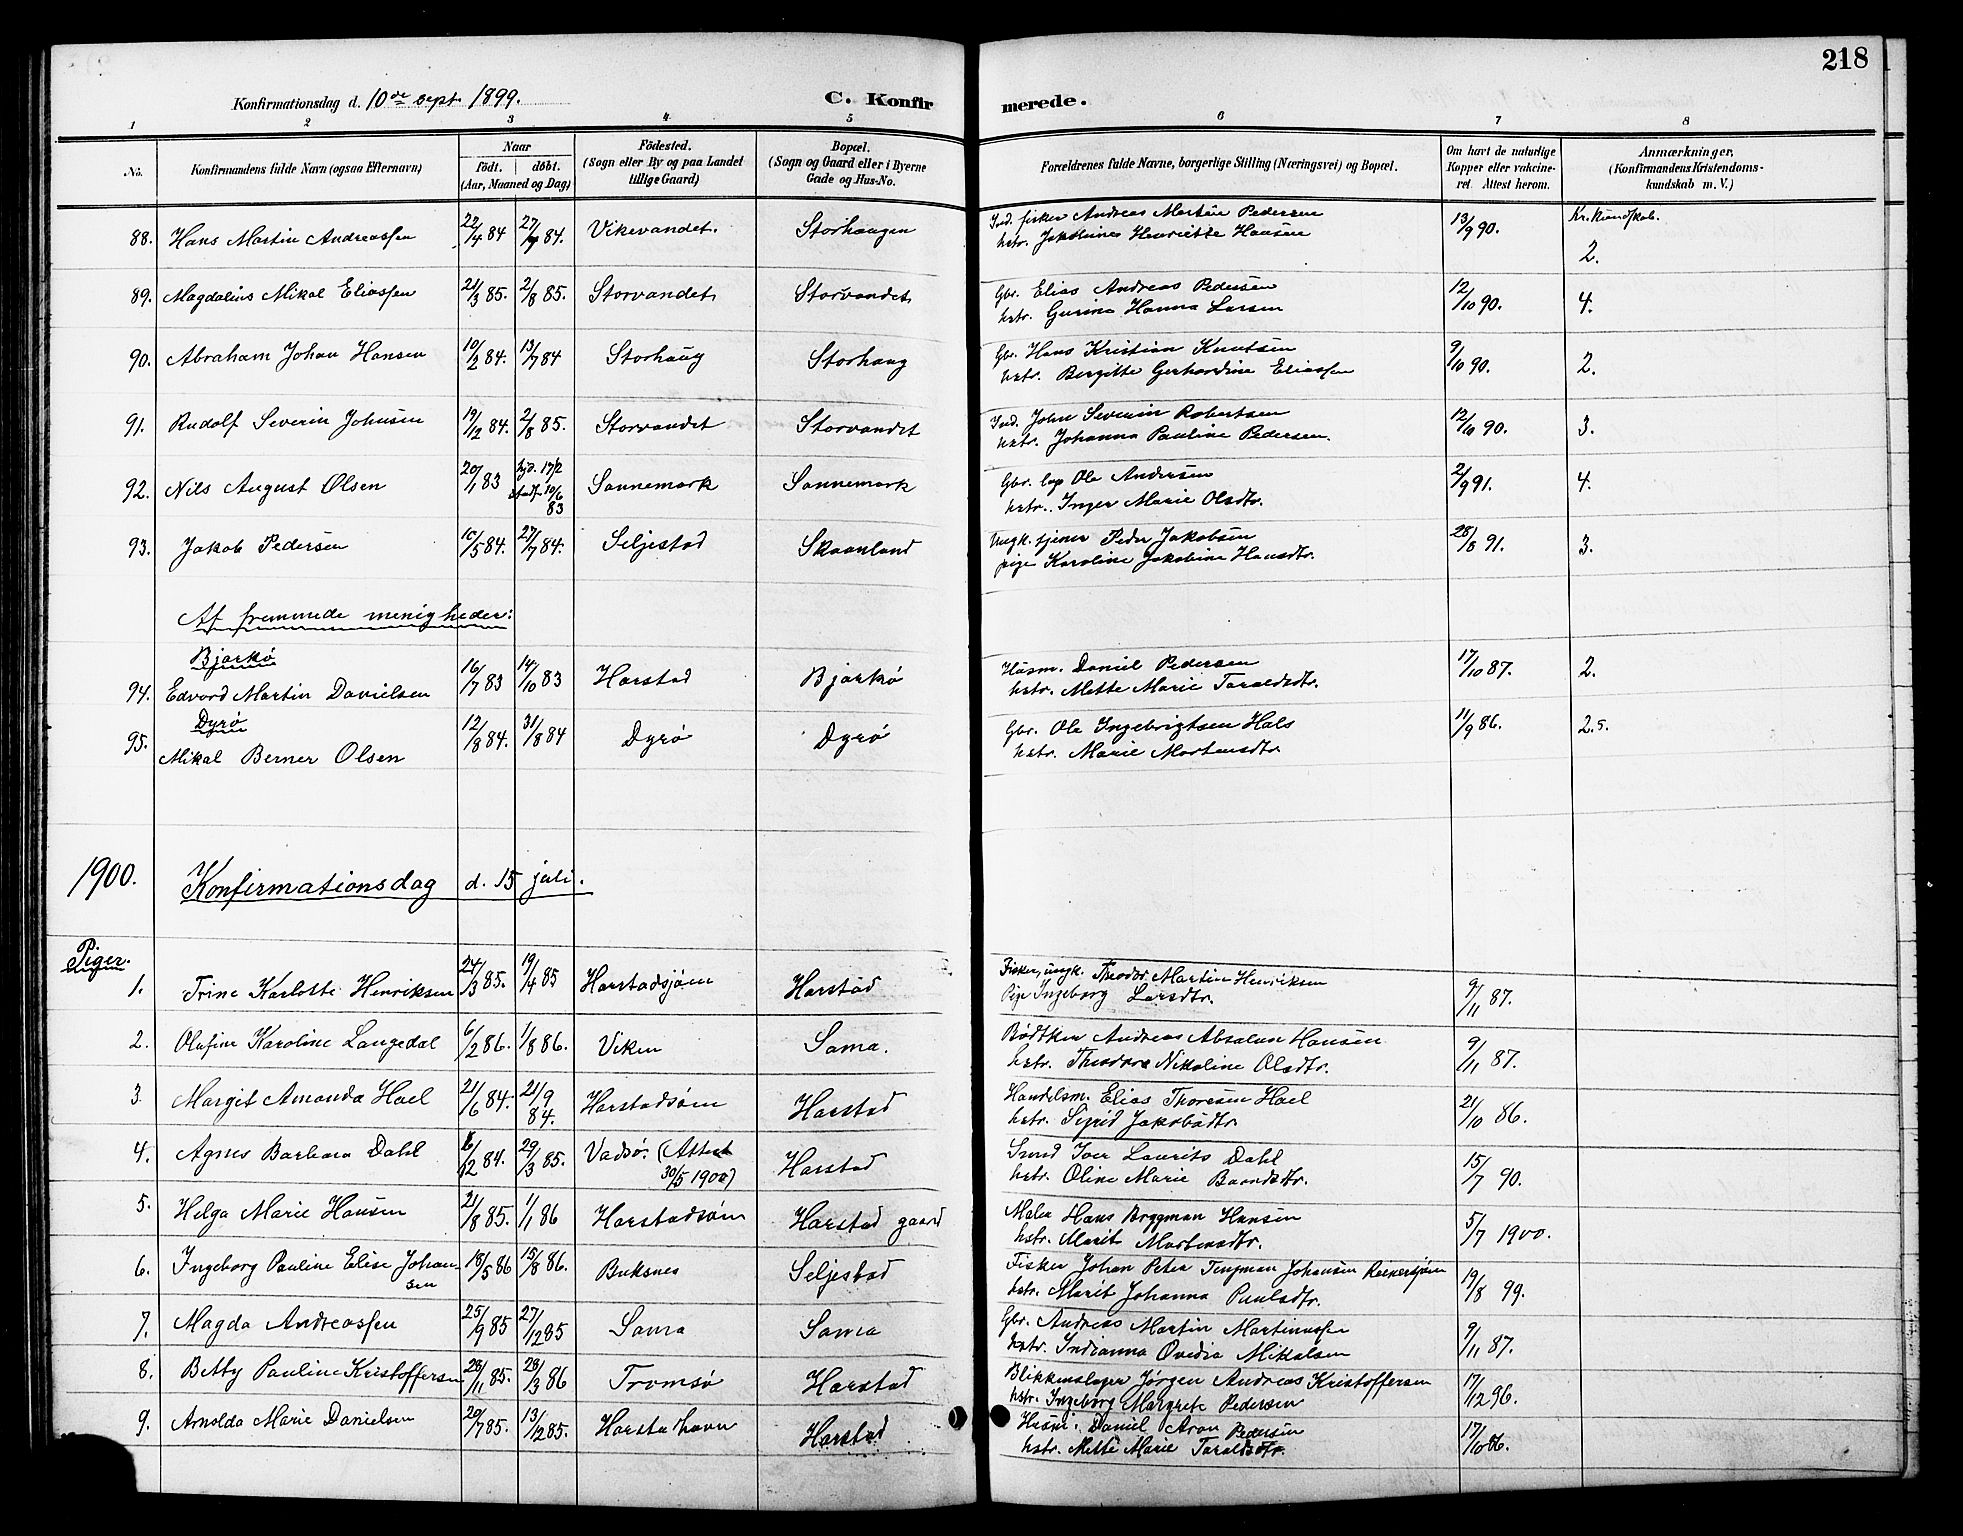 218
Konfirmationsdag d. 10de sept. 1899. C. Konfirmerede.
1 2 3 4 5 6 7 8
No. Konfirmandens fulde Navn (ogsaa Efternavn) Naar födt. döbt. (Aar, Maaned og Dag) Födested. (Sogn eller By og paa Landet tillige Gaard) Bopæl. (Sogn og Gaard eller i Byerne Gade og Hus-No. Forældrenes fulde Navne, borgerlige Stilling (Næringsvei) og Bopæl. Om havt de naturlige Kopper eller vakcineret. Attest herom. Anmærkninger, (Konfirmandens Kristendomskundskab m. V.)
88. Hans Martin Andreassen 22/4 84 27/7 84. Vikevandet. Storhaugen Ind. fisker Andreas Martin Pedersen 13/9 90. Kr. kundskab.
hstr. Henriette Hansen 2.
89. Magdalius Mikal Eliassen 21/3 85. 2/8 85. Storvandet Storvandet Gbr. Elias Andreas Pedersen 12/10 90. 4.
hstr. Gurine Hanna Larsen
90. Abraham Johan Hansen 10/2 84. 13/7 84 Storhaug Storhaug Gbr. Hans Kristian Knutsen 9/10 90. 2.
hstr. Bergitte Gerhardine Eliassen
91. Rudolf Severin Johnsen 19/12 84. 2/8 85. Storvandet Storvandet Ind. John Severin Robertsen 12/10 90. 3.
hstr. Johanna Pauline Pedersen.
92. Nils August Olsen 20/1 83 hjd. 17/2 stadf. 10/6 83 Sannemark Sannemark Gbr. lap Ole Andersen 2/9 91. 4.
hstr. Inger Marie Olsdtr.
93. Jakob Pedersen 10/5 84. 27/7 84. Seljestad Skaanland Ungk. tjener Peder Jakobsen 28/8 91. 3.
pige Karoline Jakobine Hansdtr.
Af fremmede menigheder:
Bjarkö
94. Edvard Martin Danielsen 16/7 83 14/10 83 Harstad Bjarkö Husm. Daniel Pedersen 17/10 87. 2.
hstr. Mette Marie Taraldsdtr.
Dyrö
95. Mikal Berner Olsen 12/8 84. 31/8 84 Dyrö Dyrö Gbr. Ole Ingebrigtsen Hals 11/9 86. 2.5.
hstr. Marie Mortensdtr.
1900. Konfirmationsdag d. 15 juli.
Piger.
1. Trine Karlotte Henriksen 24/3 85. 19/4 85 Harstadsjøen Harstad Fisker, ungk. Theodor Martin Henriksen 9/11 87.
Pige Ingeborg Larsdtr.
2. Olufine Karoline Langedal 6/2 86. 1/8 86. Viken Sama. Bødtker Andreas Absalon Hansen 9/11 87.
hstr. Theodora Nikoline Olsdtr.
3. Margit Amanda Hoel 21/6 84. 21/9 84. Harstadsøen Harstad Handelsm. Elias Thoresen Hoel 21/10 86.
hstr. Sigrid Jakobsdtr
4. Agnes Barbara Dahl 6/12 84. 29/3 85. Vadsø. (Attest 30/5 1900) Harstad Smed Iver Laurits Dahl 15/7 90.
hstr. Oline Marie Barndsdtr.
5. Helga Marie Hansen 21/8 85. 1/1 86 Harstadsøen Harstad gaard Maler Hans Bryggman Hansen 5/7 1900.
hstr. Marit Mortensdtr.
6. Ingeborg Pauline Elise Johansen 18/5 86 15/8 86. Buksnes Seljestad Fisker Johan Peter Tengman Johansen 19/8 99.
hstr. Marit Johanna Paulsdtr.
7. Magda Andreassen 25/9 85 27/12 85 Sama Sama Gbr. Andreas Martin Martinussen 9/11 87.
hstr. Indianna Ovedia Mikalsen
8. Betty Pauline Kristoffersen 28/11 85. 28/3 86 Tromsø Harstad Blikkenslager Jörgen Andreas Kristoffersen 17/12 96.
hstr. Ingeborg Margrete Pedersen
9. Arnolda Marie Danielsen 20/7 85. 13/12 85. Harstadhavn Harstad Husm. Daniel Aron Pedersen 17/10 86.
hstr. Mette Marie Taraldsdtr.